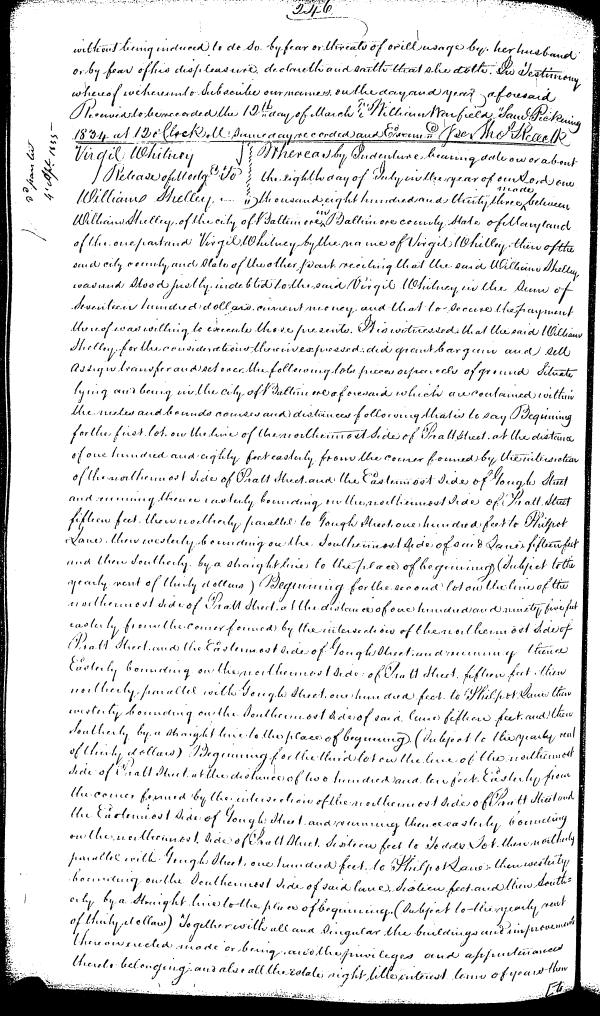 246
without being induced to do so by fear or threats of or ill usage by her husband
or by fear of his displeasure declareth and saith that she doth. In Testimony
whereof we hereunto Subscribe our names on the day and year aforesaid
Received to be recorded the 12th day of March William Warfield Saml Pickering
1834 at 12 oClock M. Same day recorded and Exam
Virgil Whitney Whereas by Indenture bearing date on or about
Release of Mortg To the eighth day of July in the year of our Lord one
William Shelley thousand eight hundred and thirty three made between
William Shelley of the city of Baltimore in Baltimore county State of Maryland
of the one part and Virgil Whitney by the name of Virgil Whitley then of the
said city county and State of the other part reciting that the said William Shelley
was and stood justly indebted to the said Virgil Whitney in the Sum of
Seventeen hundred dollars current money and that to secure the payment
thereof was willing to execute those presents. It is witnessed that the said William
Shelley for the considerations therein expressed did grant bargain and sell
assign transfer and set over the following lots pieces or parcels of ground Situate
lying and being in the city of Baltimore aforesaid which are contained within
the metes and bounds courses and distances following that is to say Begining
for the first lot on the line of the northernmost Side of Pratt Street at the distance
of one hundred and eighty feet easterly from the corner formed by the intersection
of the northernmost side of Pratt Street and the Easternmost side of Gough Street
and running thence easterly bounding on the northernmost side of Pratt Street
fifteen feet then northerly parallel to Gough Street one hundred feet to Philpot
Lane then westerly bounding on the Southernmost Side of said Lane fifteen feet
and then Southerly by a straight line to the place of beginning (Subject to the
yearly rent of thirty dollars) Beginning for the second lot on the line of the
northernmost side of Pratt Street at the distance of one hundred and ninety five feet
easterly from the corner formed by the intersection of the northernmost side of
Pratt Street and the Easternmost side of Gough Street and running thence
Easterly bounding on the northernmost Side of Pratt Street fifteen feet then
northerly parallel with Gough Street one hundred feet to Philpot Lane then
westerly bounding on the Southernmost Side of said lane fifteen feet and then
Southerly by a straight line to the place of beginning (Subject to the yearly rent
of thirty dollars) Beginning for the third lot on the line of the northernmost
Side of Pratt Street at the distance of two hundred and ten feet Easterly from
the corner formed by the intersection of the northernmost side of Pratt Street and
the Easternmost Side of Gough Street and running thence easterly bounding
on the northernmost Side of Pratt Street Sixteen feet to Todds Lot then northerly
parallel with Gough Street one hundred feet to Philpot Lane then westerly
bounding on the Southernmost Side of said lane Sixteen feet and then South=
erly by a straight line to the place of beginning (Subject to the yearly rent
of thirty dollars) Together with all and Singular the buildings and improvements
thereon erected made or being and the privileges and appurtenances
thereto belonging and also all the estate right title interest term of years then